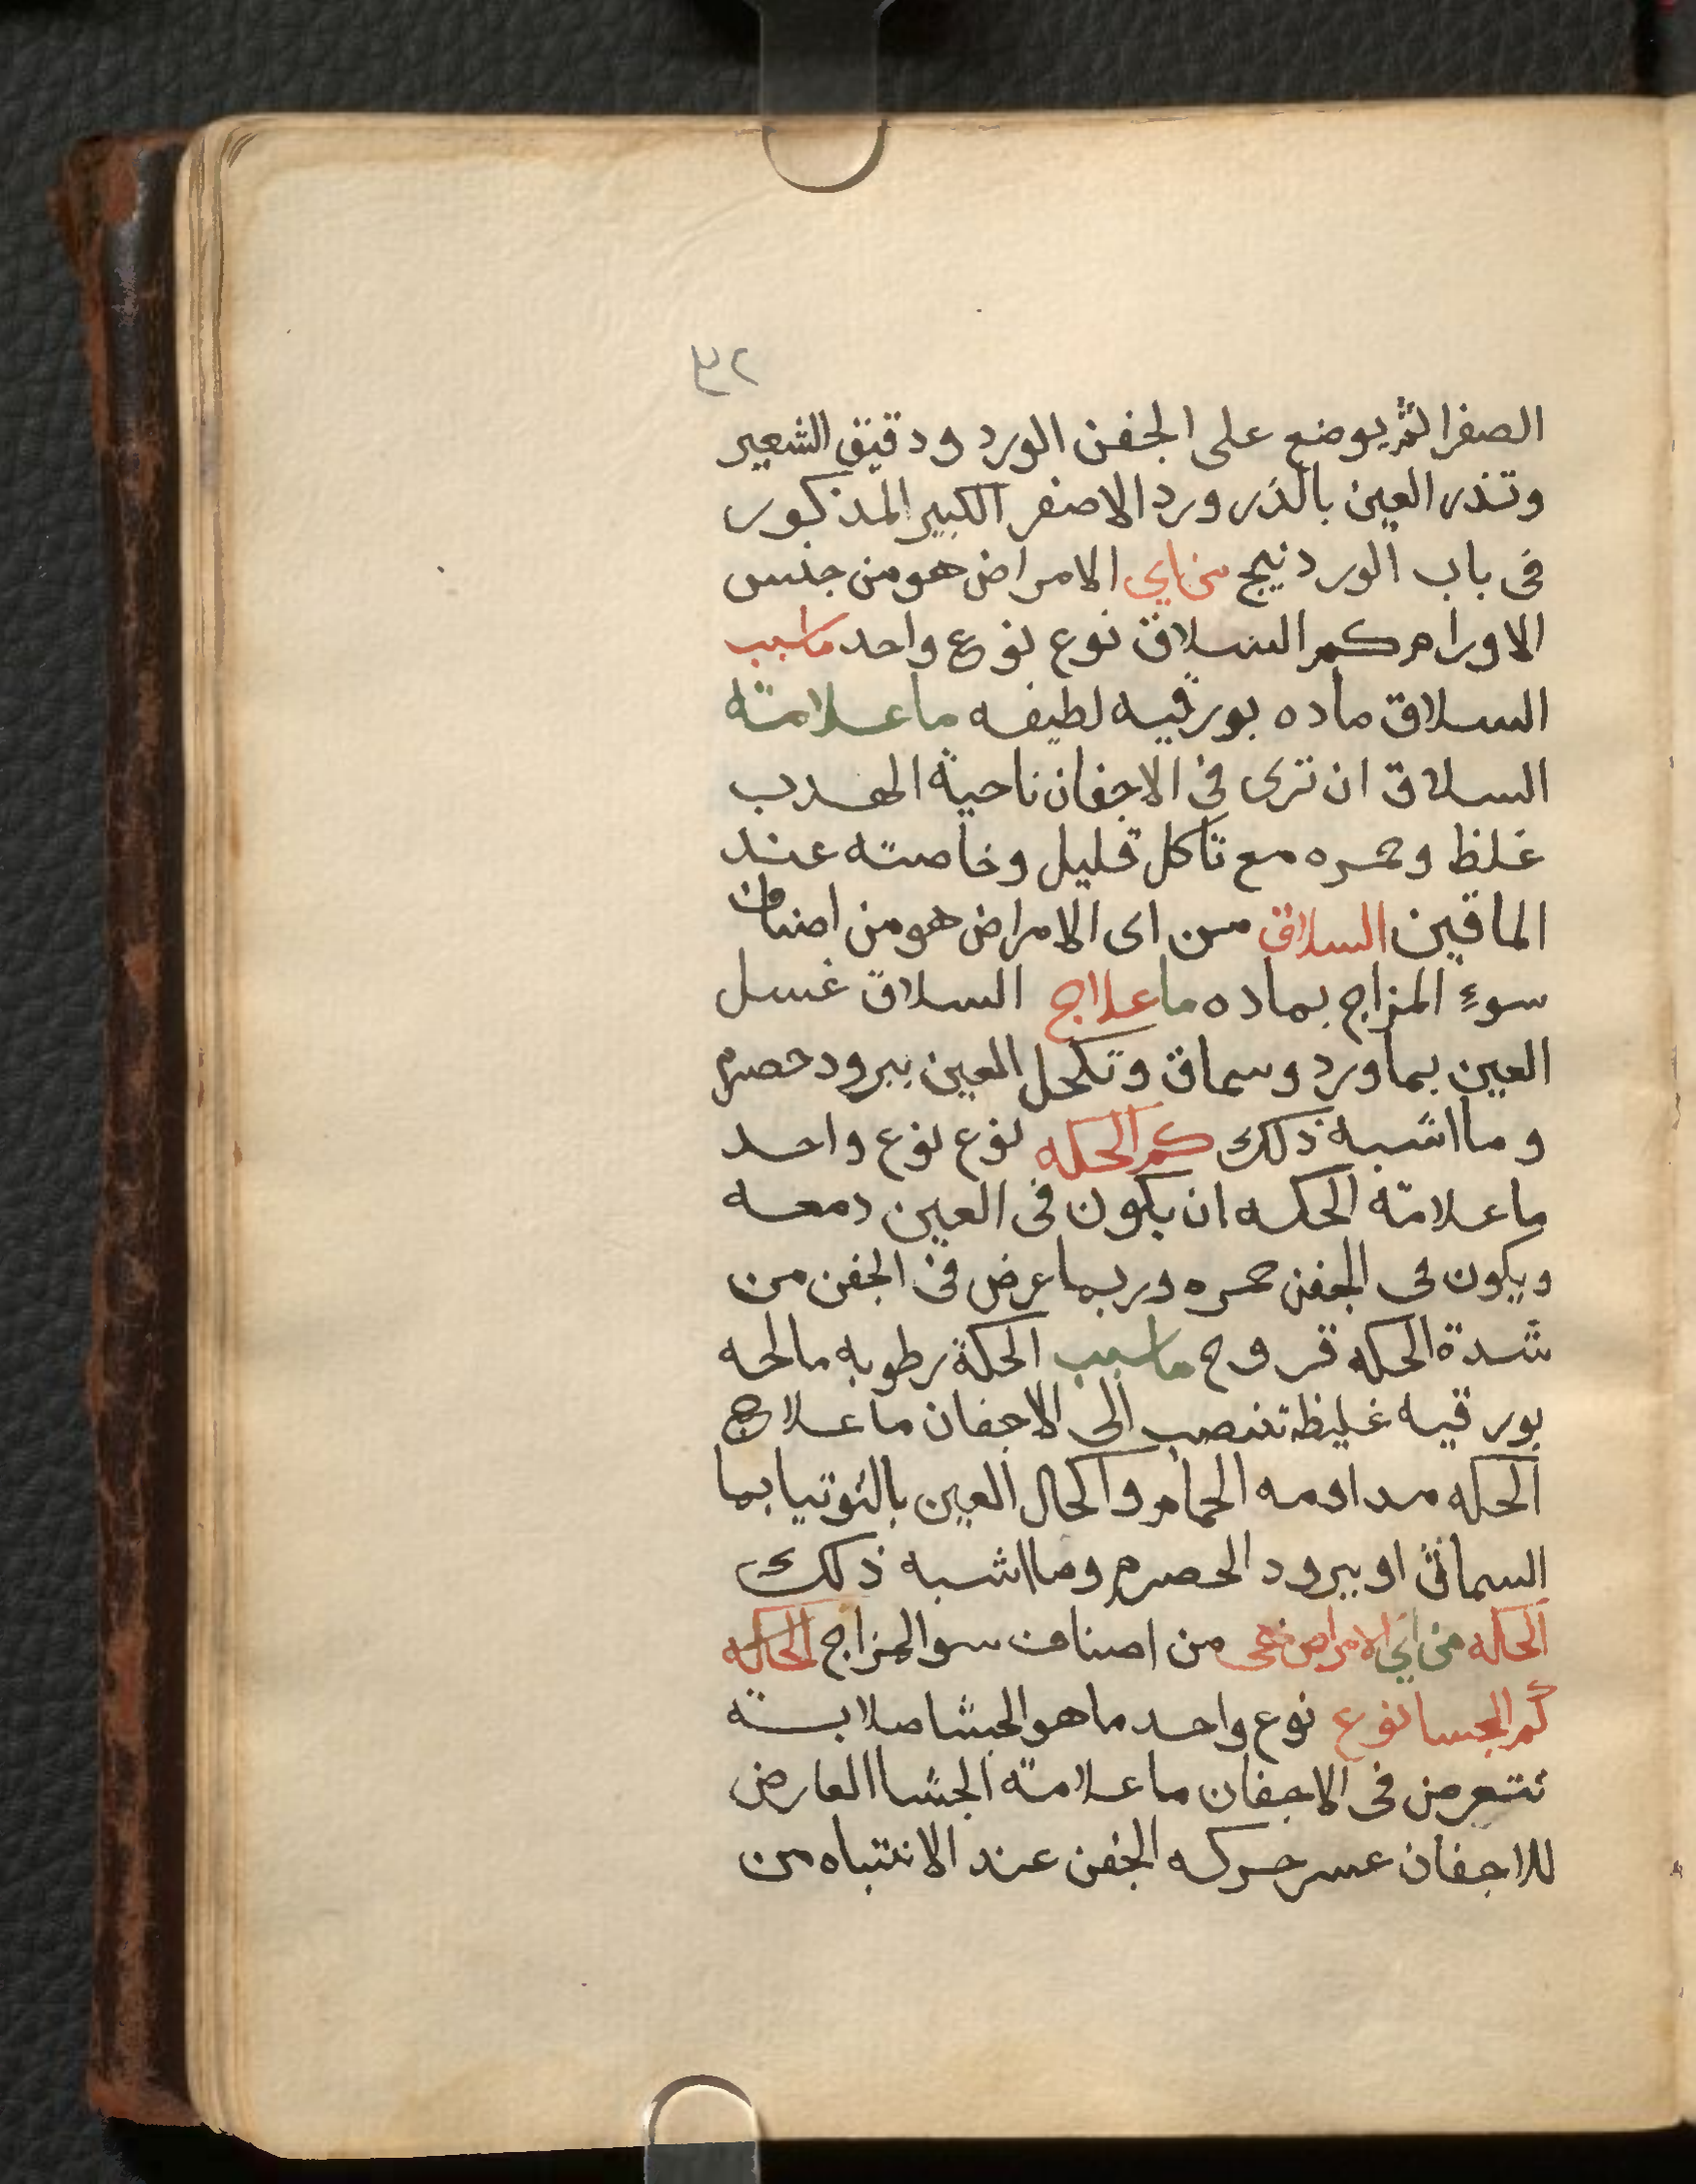 ٣٢
الصفرا ثم يوضع على الجفن الورد ودقيق الشعير
وتذر العين بالذرورد الاصفر الكبير المذكور
فى باب الوردنيج من اي الامراض هو من جنس
الاورام كم السلاق نوع نوع واحد ما سبب
السلاق ماده بورقيه لطيفه ما علامة
السلاق ان ترى في الاجفان ناحية الهدب
غلظ وحمره مع تاكل قليل وخاصته عند
الماقين السلاق من اى الامراض هو من اصناف
سوء المزاج بماده ما علاج السلاق غسل
العين بماورد وسماق وتكحل العين ببرود حصرم
وما اشبه ذلك كم الحكه نوع نوع واحد
ما علامة الحكه ان يكون فى العين دمعه
ويكون فى الجفن حمره وربما عرض فى الجفن من
شدة الحكه قروح ما سبب الحكة رطوبه مالحه
بورقيه غليظه تنصب الى الاجفان ما علاج
الحكه مداومه الحمام واكحال العين بالتوتيا بما
السماق او ببرود الحصرم وما اشبه ذلك
الحكه من اي الامراض هى من اصناف سو المزاج الحكه
كم الجسا نوع نوع واحد ما هو الجشا صلابة
تتعرض فى الاجفان ما علامة الجشا العارض
للاجفان عسر حركه الجفن عند الانتباه من